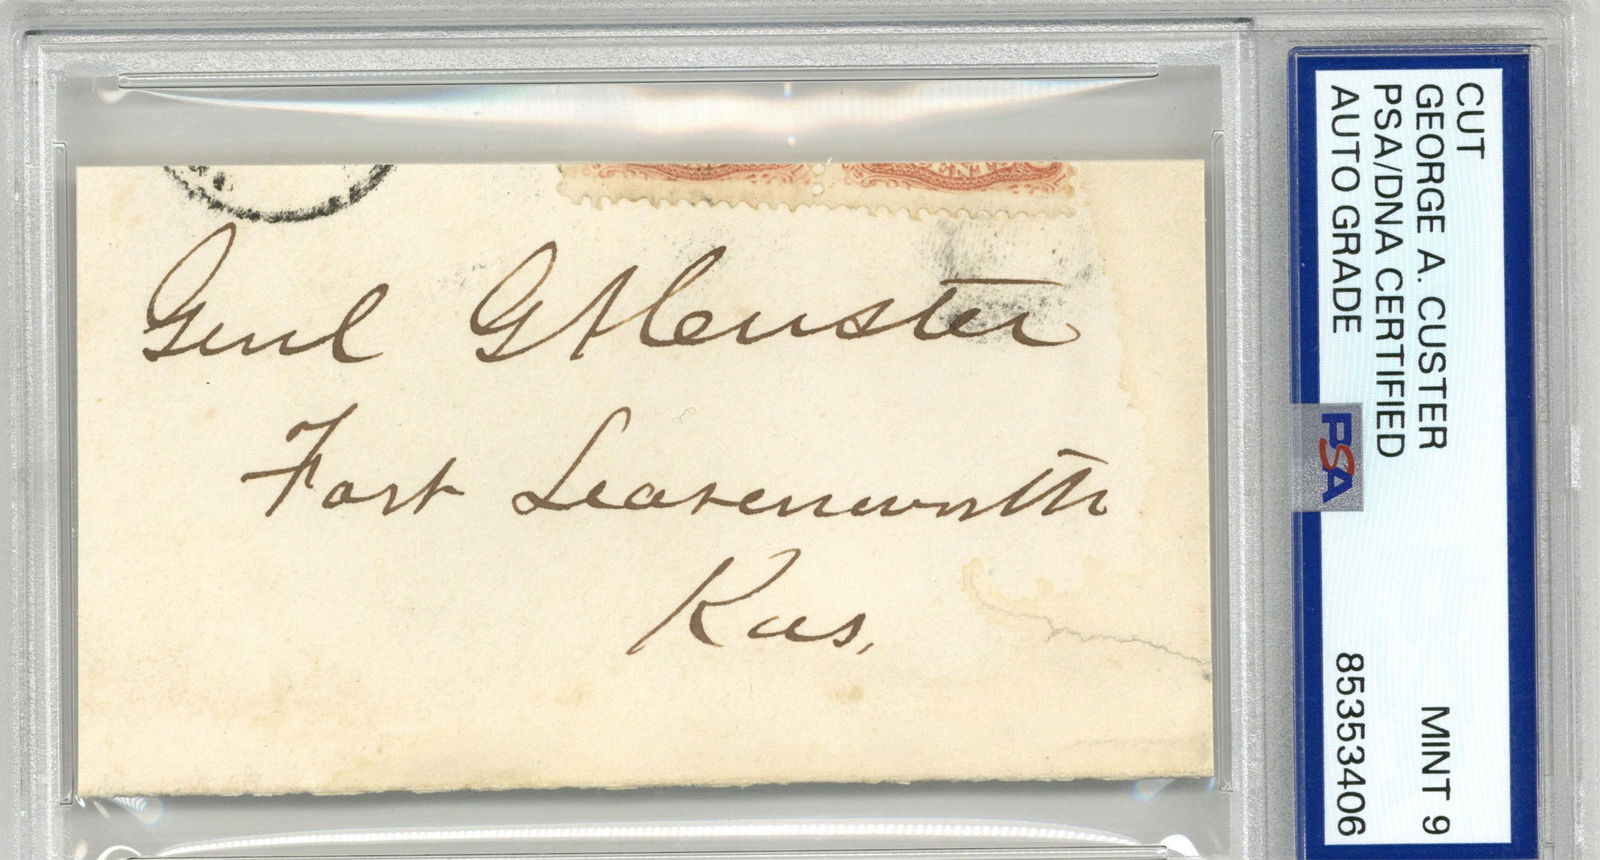 Genl GACuster
Fort Leavenworth
Kas.
CUT
GEORGE A. CUSTER
PSA/DNA CERTIFIED
AUTO GRADE
MINT 9
85353406
PSA